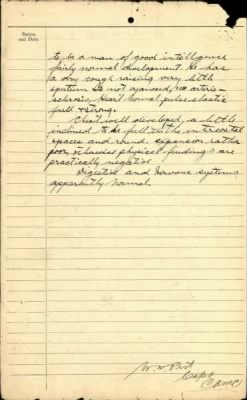 Station
and Date.
to be a man of good intelligence
fairly normal development. He has
a dry cough raising very little
sputum. Is not cyanosed, no arterio-
sclerosis. Heart normal pulse elastic
full & strong.
Chest well developed, a little
inclined to be full in the intercostal
spaces and round. expansion rather
poor, otherwise physical findings are
practically negative
Digestive and Nervous systems
apparently normal.
Capt
CAMC